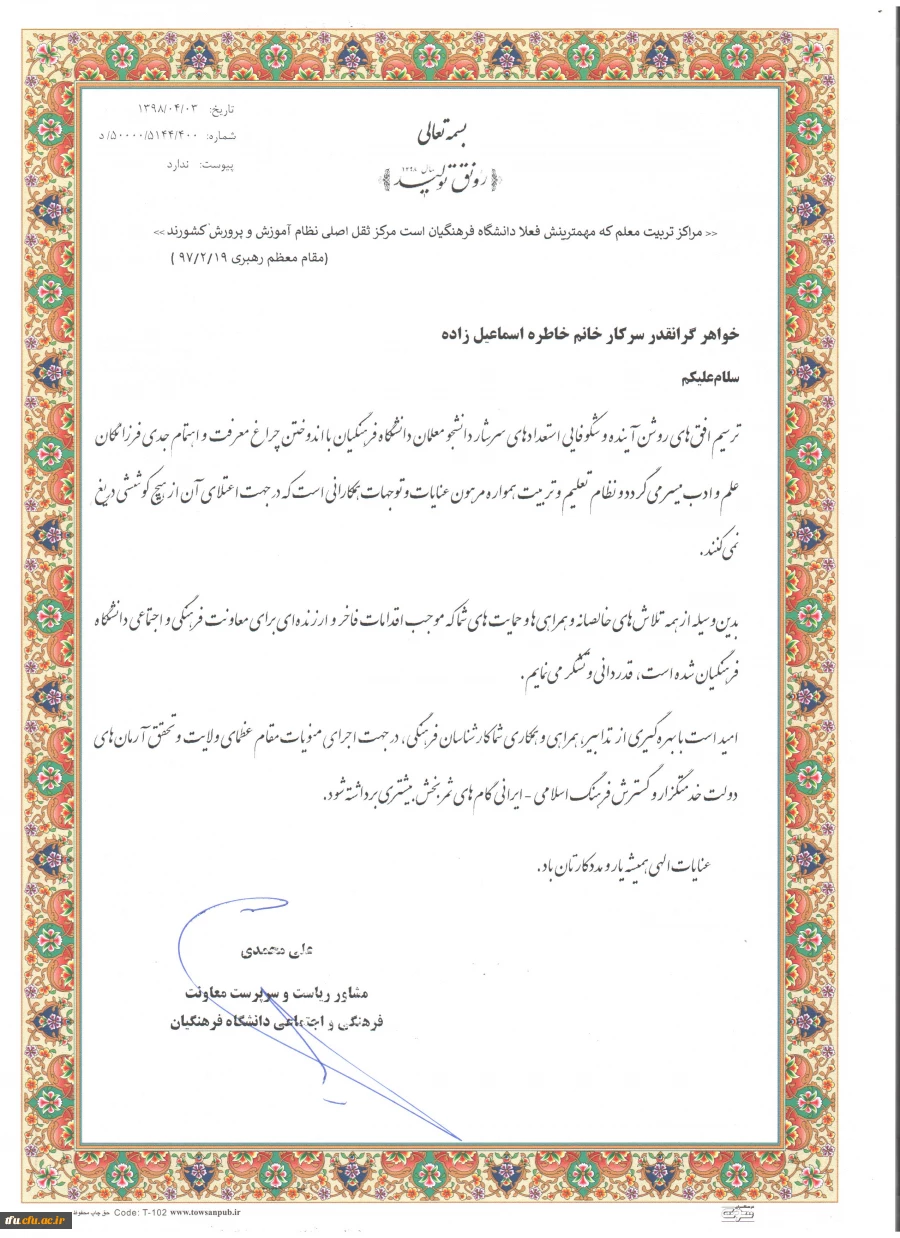 تاریخ: ۱۳۹۸/۰۴/۰۳
شماره: ۵۰۰۰۰/۵۱۴۴/۴۰۰/د
پیوست: ندارد
بسمه تعالی
سال ۱۳۹۸
رونق تولید
<< مراکز تربیت معلم که مهمترینش فعلا دانشگاه فرهنگیان است مرکز ثقل اصلی نظام آموزش و پرورش کشورند >>
(مقام معظم رهبری ۹۷/۲/۱۹ )
خواهر گرانقدر سرکار خانم خاطره اسماعیل زاده
سلام علیکم
ترسیم افق های روشن آینده و شکوفایی استعدادهای سرشار دانشجو معلمان دانشگاه فرهنگیان با اندوختن چراغ معرفت و اهتمام جدی فرزانگان
علم و ادب میسر می گردد و نظام تعلیم و تربیت همواره مرهون عنایات و توجهات همکارانی است که در جهت اعتلای آن از هیچ کوششی دریغ
نمی کنند.
بدین وسیله از همه تلاش های خالصانه و همراهی ها و حمایت های شما که موجب اقدامات فاخر و ارزنده ای برای معاونت فرهنگی و اجتماعی دانشگاه
فرهنگیان شده است، قدردانی و تشکر می نمایم.
امید است با بهره گیری از تدابیر، همراهی و همکاری شما کارشناسان فرهنگی، در جهت اجرای منویات مقام عظمای ولایت و تحقق آرمان های
دولت خدمتگزار و گسترش فرهنگ اسلامی - ایرانی گام های ثمربخش بیشتری برداشته شود.
عنایات الهی همیشه یار و مددکارتان باد.
علی محمدی
مشاور ریاست و سرپرست معاونت
فرهنگی و اجتماعی دانشگاه فرهنگیان
حق چاپ محفوظ Code: T-102 www.towsanpub.ir
tfu.cfu.ac.ir